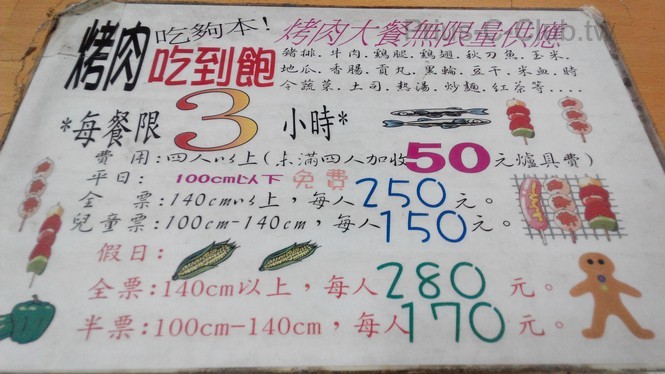 烤肉吃夠本! 烤肉大餐無限量供應
吃到飽
豬排.牛肉.雞腿.雞翅.秋刀魚.玉米.
地瓜.香腸.貢丸.黑輪.豆干.米血.時
令蔬菜.土司.熱湯.炒麵.紅茶等....
*每餐限3小時*
費用:四人以上(未滿四人加收50元爐具費)
平日: 100cm以下 免費
全票:140cm以上,每人250元。
兒童票:100cm-140cm,每人150元。
假日:
全票:140cm以上,每人280元。
半票:100cm-140cm,每人170元。